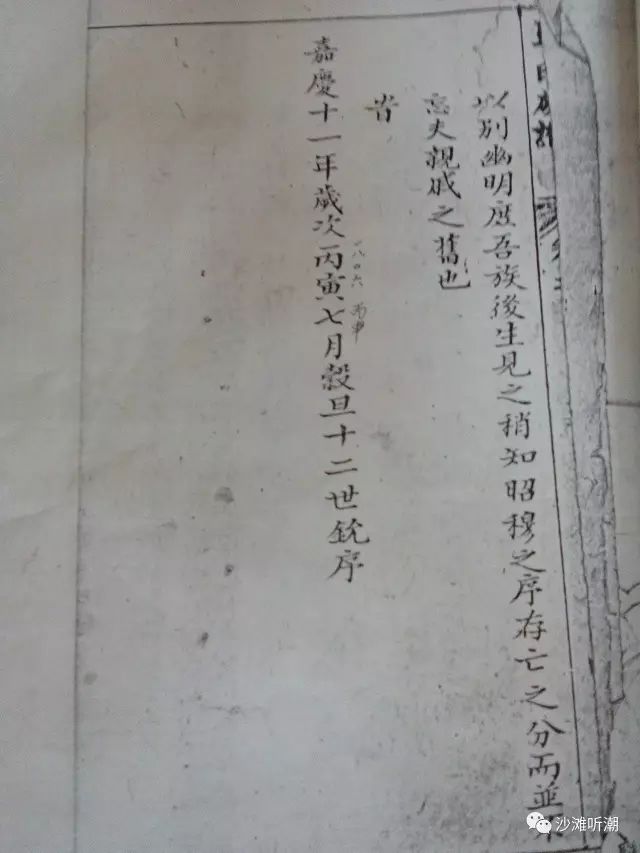 以別幽明庶吾族後生見之稍知昭穆之序存亡之分而並不
忘夫親戚之舊也
旹
嘉慶十一年歲次丙寅七月穀旦十二世銳序
一八〇六
沙滩听潮